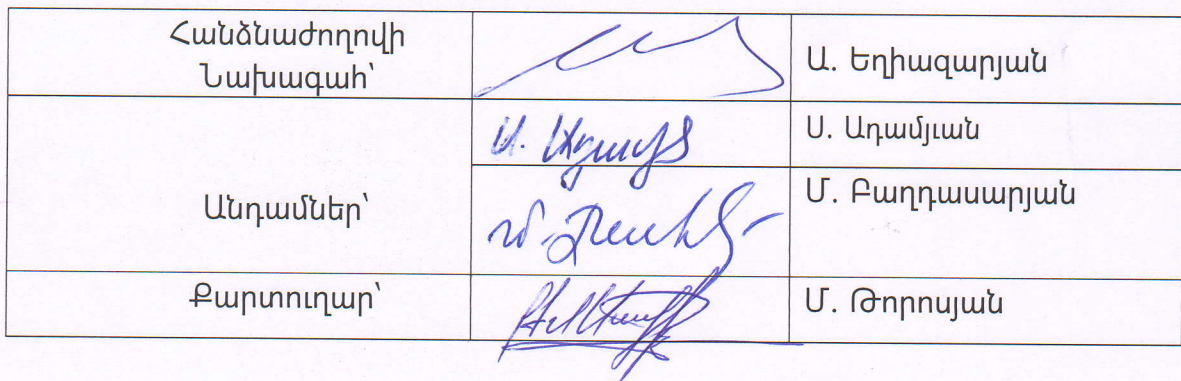 Հանձնաժողովի
Նախագահ՝
Ա. Եղիազարյան
Ս. Ադամյան
Անդամներ՝
Մ. Բաղդասարյան
Քարտուղար՝
Մ. Թորոսյան